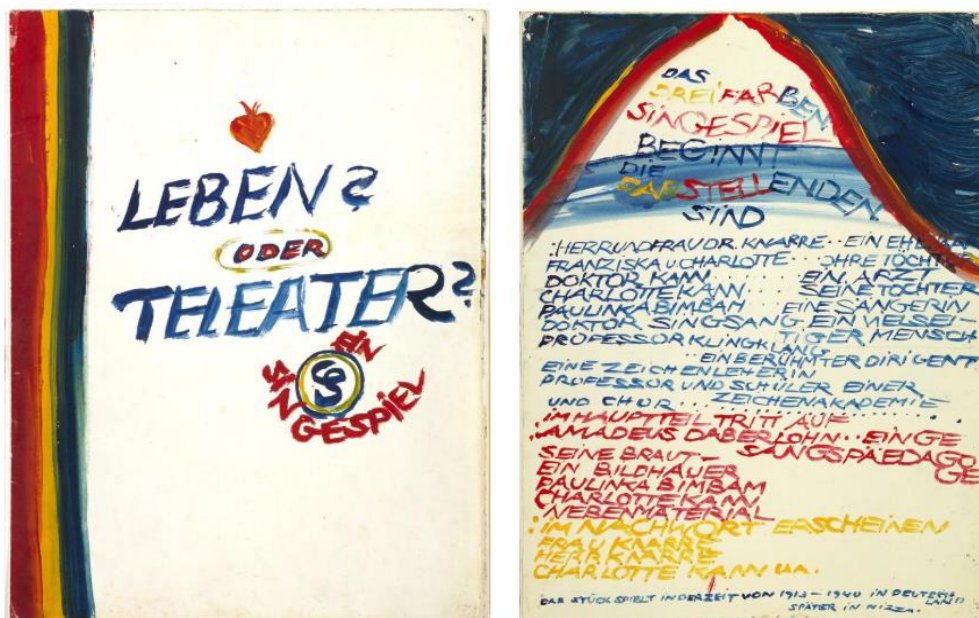 LEBEN?
ODER
TELEATER?
EIN
SINGESPIEL
CS
DAS
DREIFARBEN
SINGESPIEL
BEGINNT
DIE
DARSTELLENDEN
SIND
:HERR UND FRAU DR. KNARRE··EIN
FRANZISKA U. CHARLOTTE··IHRE
DOKTOR KANN.....EIN ARZT
CHARLOTTE KANN....SEINE TOCHTER
PAULINKA BIMBAM EINE SÄNGERIN
DOKTOR SINGSANG EIN VIELSEI
PROFESSOR KLINGKLANG TIGER MENSCH
EIN BERÜHMTER DIRIGENT
EINE ZEICHENLEHERIN
PROFESSOR UND SCHÜLER EINER
UND CHOR...ZEICHENAKADEMIE
:IM HAUPTTEIL TRITT AUF
:AMADEUS DABERLOHN··EIN GE
SANGSPÆDAGO
GE
SEINE BRAUT–
EIN BILDHAUER
PAULINKA BIMBAM
CHARLOTTE KANN
NEBENMATERIAL
:IM NACHWORT ERSCHEINEN
FRAU KNARRE
HERR KNARRE
CHARLOTTE KANN U.A.
DAS STÜCK SPIELT IN DER ZEIT VON 1913–1940 IN DEUTSCH
LAND
SPÄTER IN NIZZA.